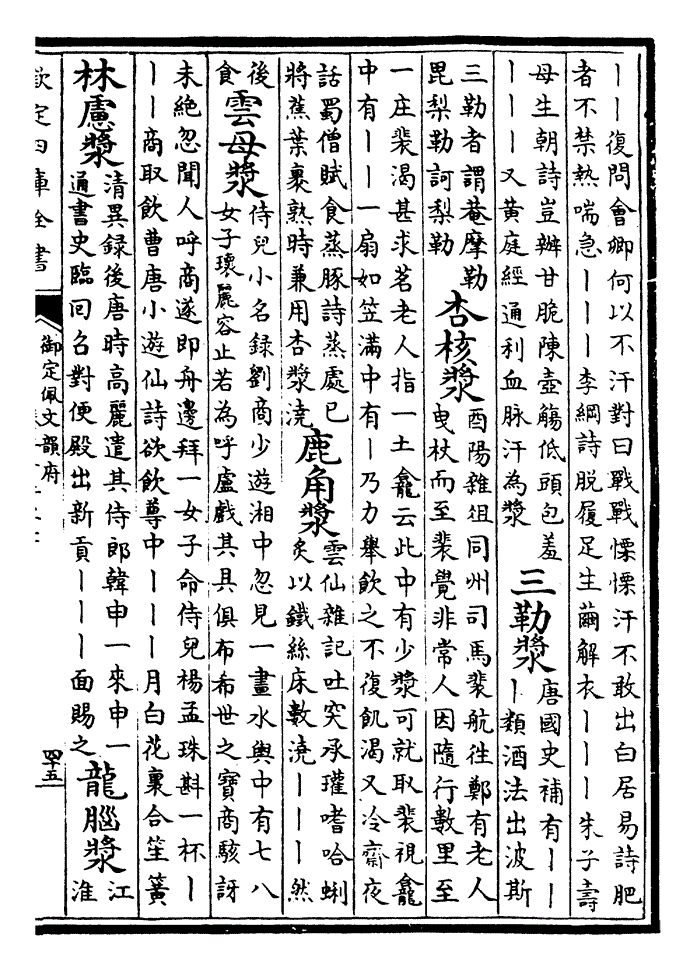 丨丨復問會卿何以不汗對曰戰戰慄慄汗不敢出白居易詩肥
者不禁熱喘急丨丨丨李綱詩脱履足生繭解衣丨丨丨朱子壽
母生朝詩豈辦甘脆陳壺觴低頭包羞
丨丨丨又黄庭經通利血脉汗為漿
三勒漿
唐國史補有丨丨
丨類酒法出波斯
三勒者謂菴摩勒
毘梨勒訶梨勒
杏核漿
酉陽雜俎同州司馬裴航徃鄭有老人
曳杖而至裴覺非常人因隨行數里至
一庄裴渴甚求茗老人指一土龕云此中有少漿可就取裴視龕
中有丨丨一扇如笠滿中有丨乃力舉飲之不復飢渴又冷齋夜
話蜀僧賦食蒸豚詩蒸處已
將蕉葉裹熟時兼用杏漿澆
鹿角漿
雲仙雜記吐突承璀嗜哈蜊
炙以鐵絲床數澆丨丨丨然
後
食
雲母漿
侍兒小名録劉商少遊湘中忽見一畫水輿中有七八
女子瓌麗容止若為呼盧戲其具俱布希世之寶商駭訝
未絶忽聞人呼商遂即舟邊拜一女子命侍兒楊孟珠斟一杯丨
丨丨商取飲曹唐小遊仙詩欲飲尊中丨丨丨月白花裏合笙簧
林慮漿
清異録後唐時高麗遣其侍郎韓申一來申一
通書史臨回召對便殿出新貢丨丨丨面賜之
龍腦漿
江
淮
欽定四庫全書
御定佩文韻府
四十五